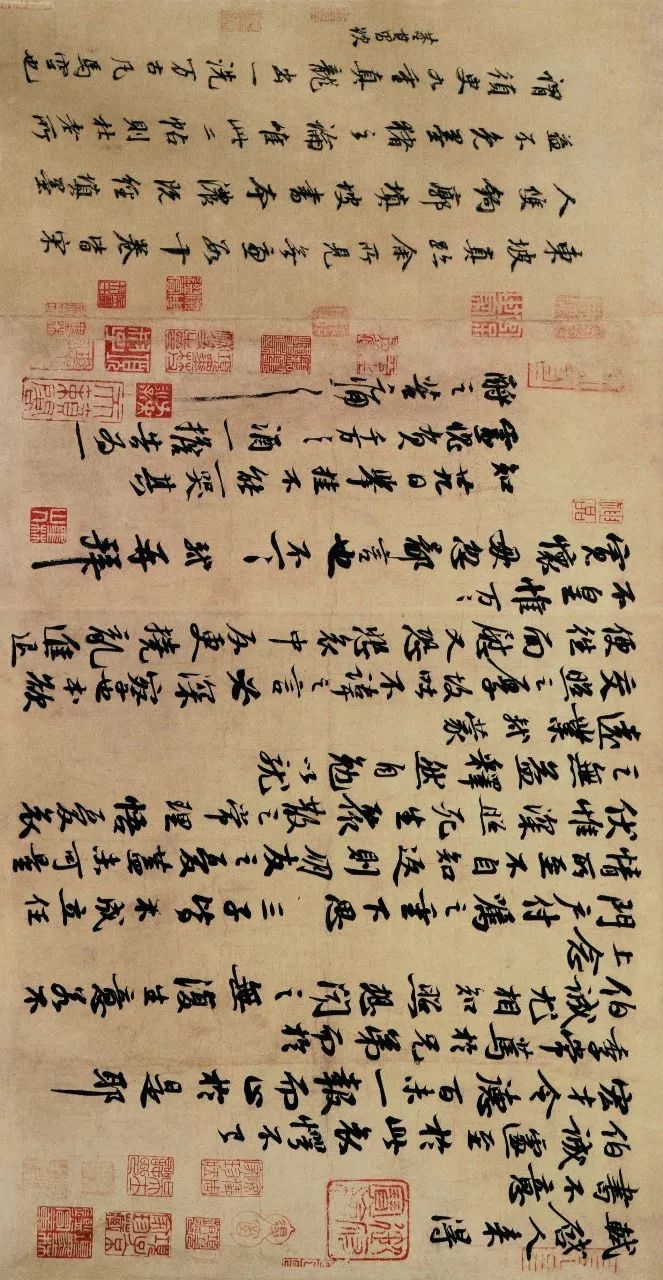 軾啓人来得
書不意
伯誠遽至於此哀愕不已
宏才令德百未一報而止於是耶
季常篤於兄弟而於
伯誠尤相知照想聞之無復生意若不
上念
門户付囑之重下思三子皆未成立任
情所至不自知返則朋友之憂盖未可量
伏惟深照死生聚散之常理悟憂哀
之無益釋然自勉以就
遠業軾蒙
交照之厚故吐不諱之言必深察也本欲
便往面慰又恐悲哀中反更撓亂進退
不皇惟万万
寬懷毋忽鄙言也不一一軾再拜
知廿九日舉挂不能一哭其
靈愧負千万千万酒一擔告為一
酹之苦痛苦痛
東坡真跡余所見無慮數十卷皆宋
人雙鈎廓填坡書本濃既經填墨
益不免墨猪之論唯此二帖則杜老所
謂須臾九重真龍出一洗万古凡馬空也
董其昌跋